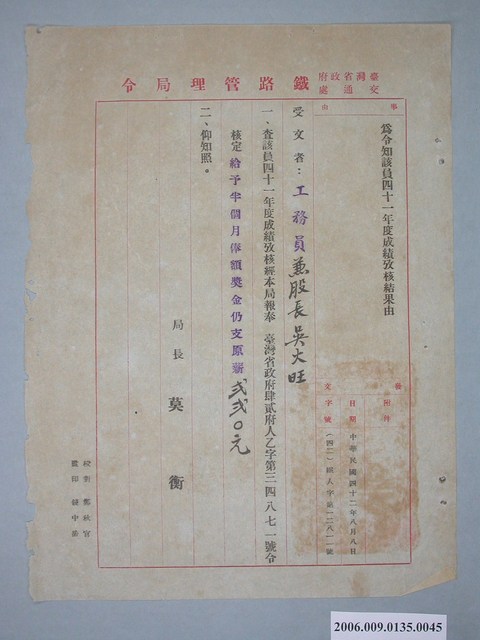 臺灣省政府
交通處
鐵路管理局令
事由
為令知該員四十一年度成績攷核結果由
發文
附件
日期 中華民國四十二年八月八日
字號 (四二)鐵人字第一二八一一號
受文者：工務員兼股長吳火旺
一、查該員四十一年度成績攷核經本局報奉 臺灣省政府肆貳府人乙字第三四八七一號令
核定給予半個月俸額獎金仍支原薪弍弍〇元
二、仰知照。
局長 莫衡
校對
監印
2006.009.0135.0045